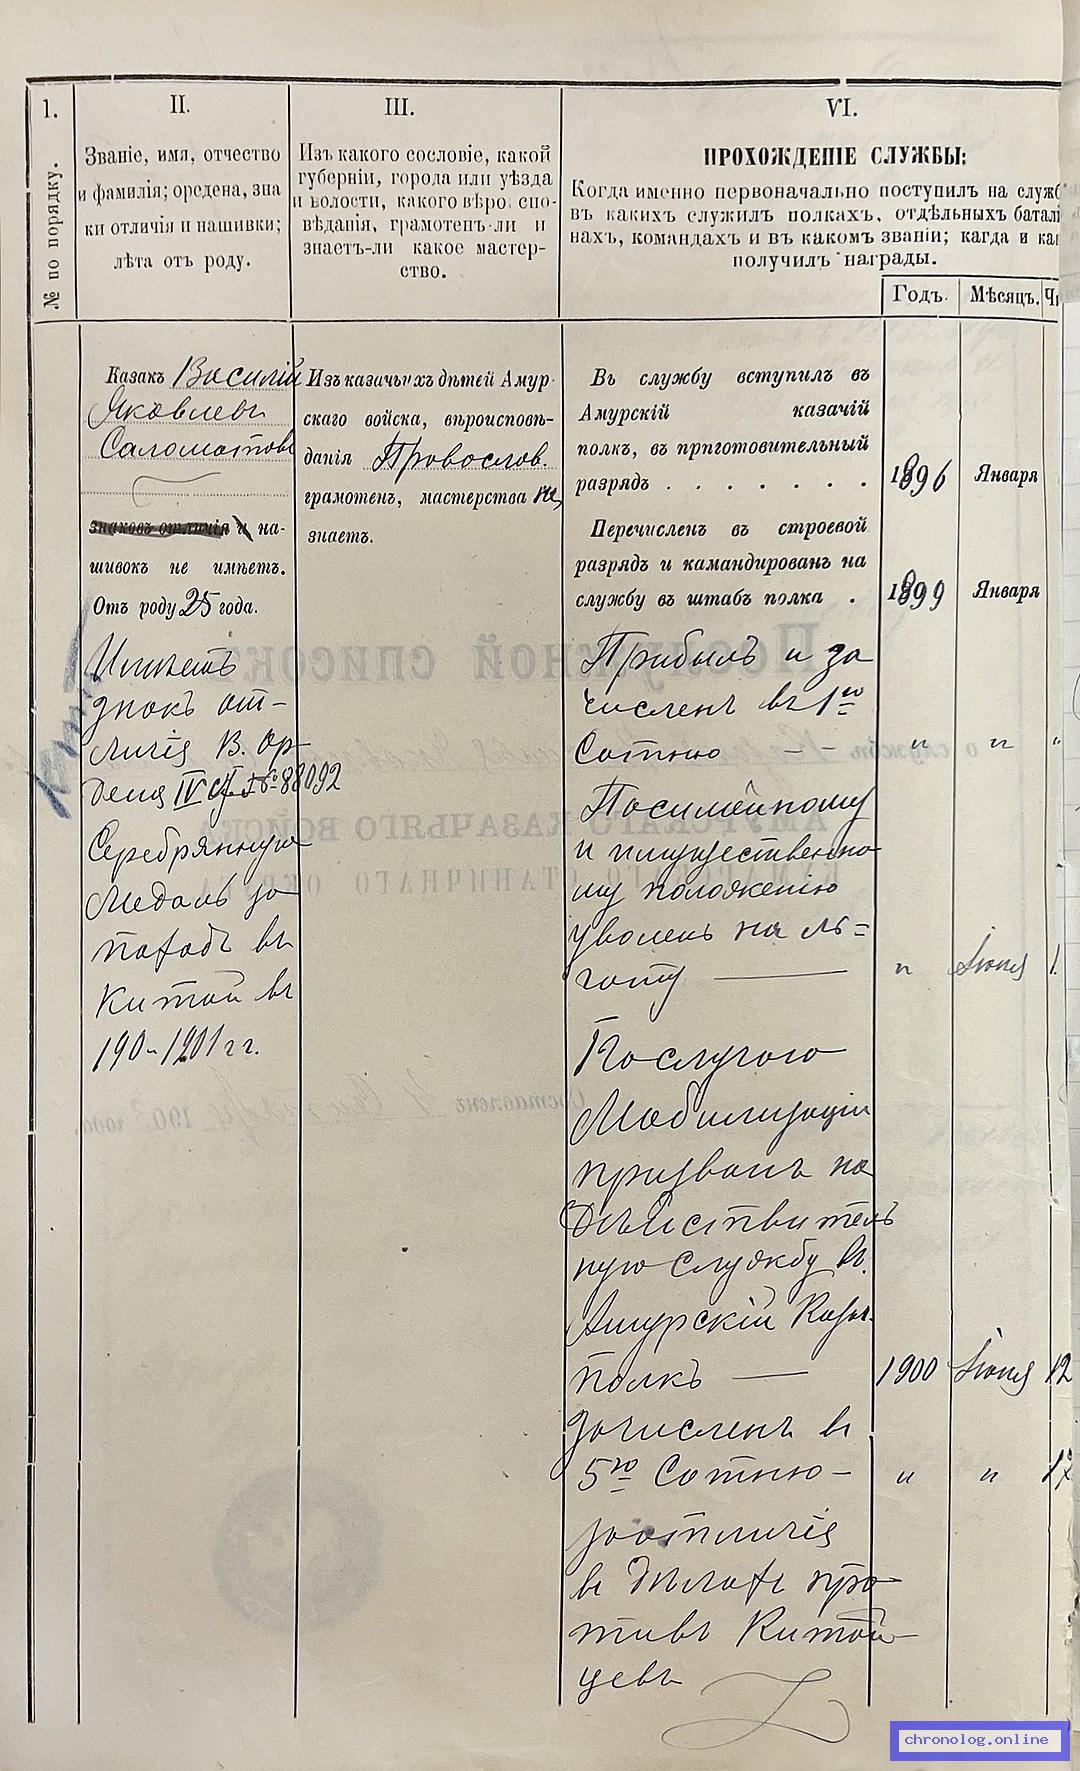 1.
№ по порядку.
II.
Званіе, имя, отчество
и фамилія; оредена, зна
ки отличія и нашивки;
лѣта отъ роду.
III.
Изъ какого сословіе, какой
губерніи, города или уѣзда
и волости, какого вѣро спо-
вѣданія, грамотенъ-ли и
знаетъ-ли какое мастер-
ство.
VI.
ПРОХОЖДЕНІЕ СЛУЖБЫ:
Когда именно первоначально поступилъ на служб
въ какихъ служилъ полкахъ, отдѣльныхъ баталі
нахъ, командахъ и въ какомъ званіи; кагда и ка
получилъ награды.
Годъ.
Мѣсяцъ.
Чи
Казакъ Василій
Яковлевъ
Саломатовъ
знаковъ отличія и на-
шивокъ не имѣетъ.
Отъ роду 25 года.
Имѣетъ
знакъ от-
личія В. Ор-
дена IV ст. № 88092
Серебрянную
Медаль за
походъ въ
Китай въ
190-1901 гг.
Изъ казачьихъ дѣтей Амур-
скаго войска, вѣроисповѣ-
данія Провослов.
грамотен, мастерства не
знаетъ.
Въ службу вступилъ въ
Амурскій казачій
полкъ, въ приготовительный
разрядъ . . . . . . . 1896 Января
Перечисленъ въ строевой
разрядъ и камандированъ на
службу въ штабъ полка . 1899 Января
Прибылъ и за
численъ въ 1ю
Сотню - - " " "
Посимейному
и имущественно-
му положенію
уволенъ на ль=
готу — " Іюня 1.
По случаю
Мобилизаціи
призванъ на
Дѣйствитель
ную службу въ
Амурскій Казач.
полкъ — 1900 Іюня 12
Зачисленъ въ
5ю Сотню - " " 17
За отличія
въ дѣлахъ про-
тивъ Китай-
цевъ
Послужной списокъ
о службѣ
АМУРСКАГО КАЗАЧЬЯГО ВОЙСКА
СТАНИЧНАГО ОКРУГА
Составленъ
190 года.
chronolog.online